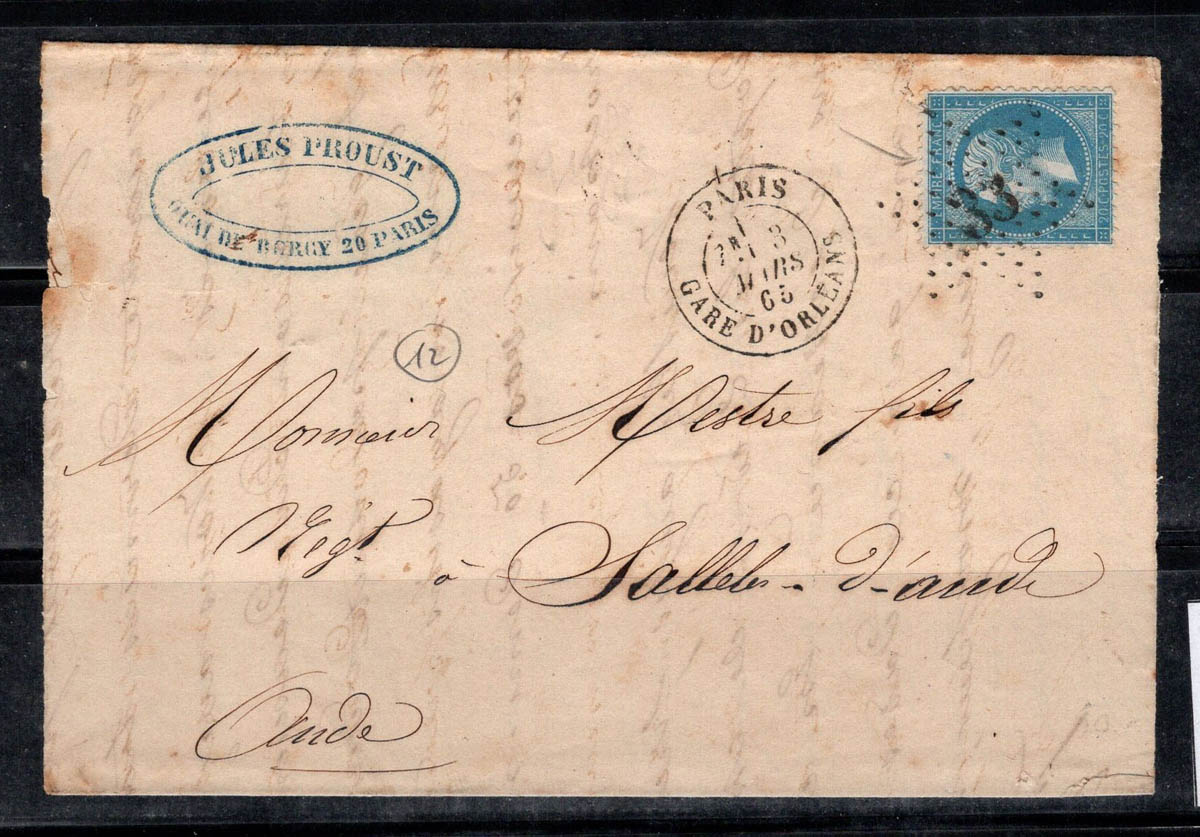 JULES PROUST
QUAI DE BERCY 20 PARIS
PARIS
3
MARS
65
GARE D'ORLÉANS
EMPIRE FRANC
20C POSTES 20C
33
12
Monsieur Mestre fils
Négt
à Salleles-d'aude
Aude